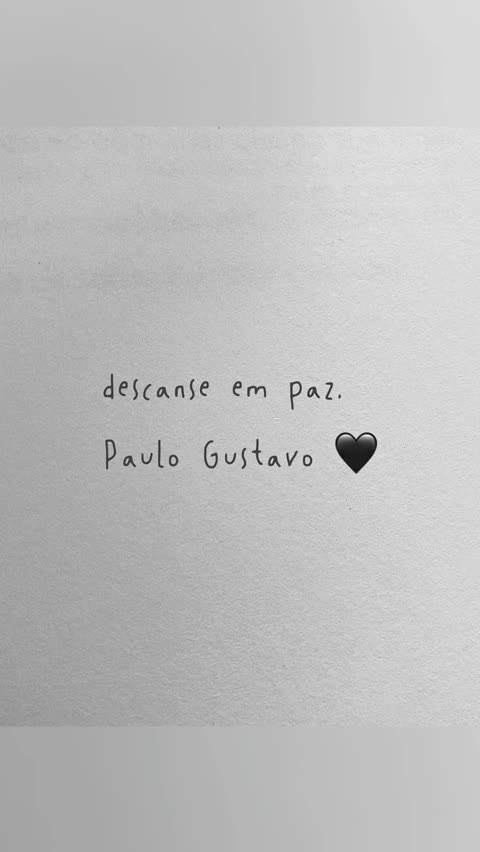 descanse em paz.
Paulo Gustavo 🖤